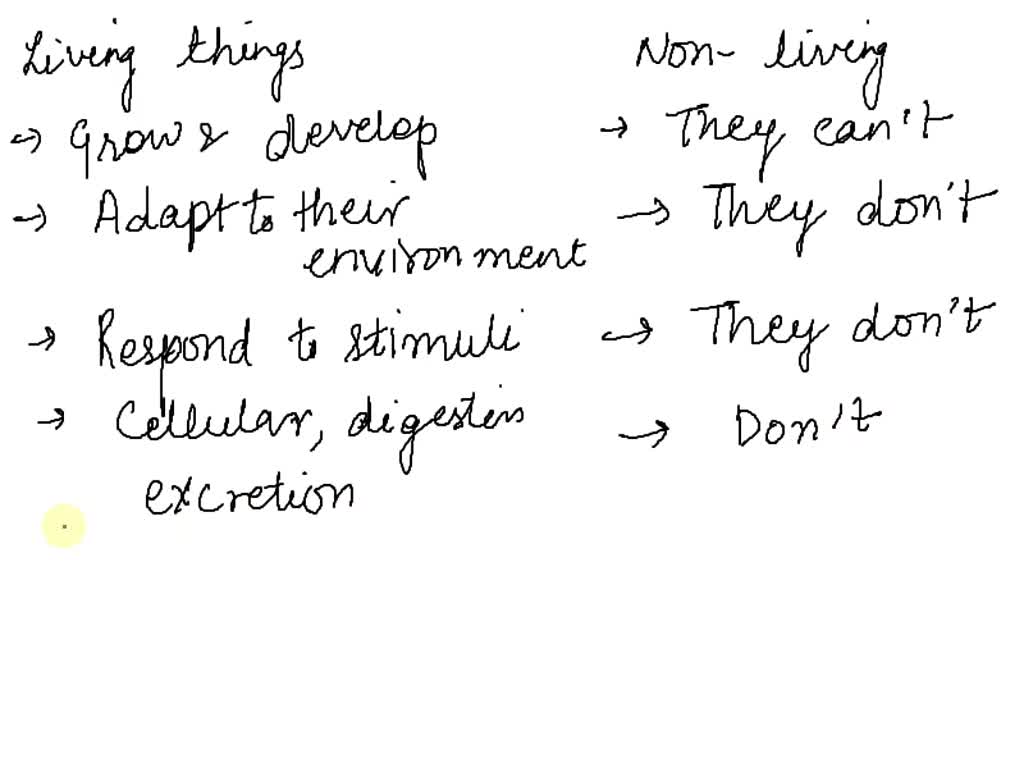 Living things Non-living
→ Grow & develop → They can't
→ Adapt to their → They don't
environment
→ Respond to stimuli → They don't
→ Cellular, digestion → Don't
excretion